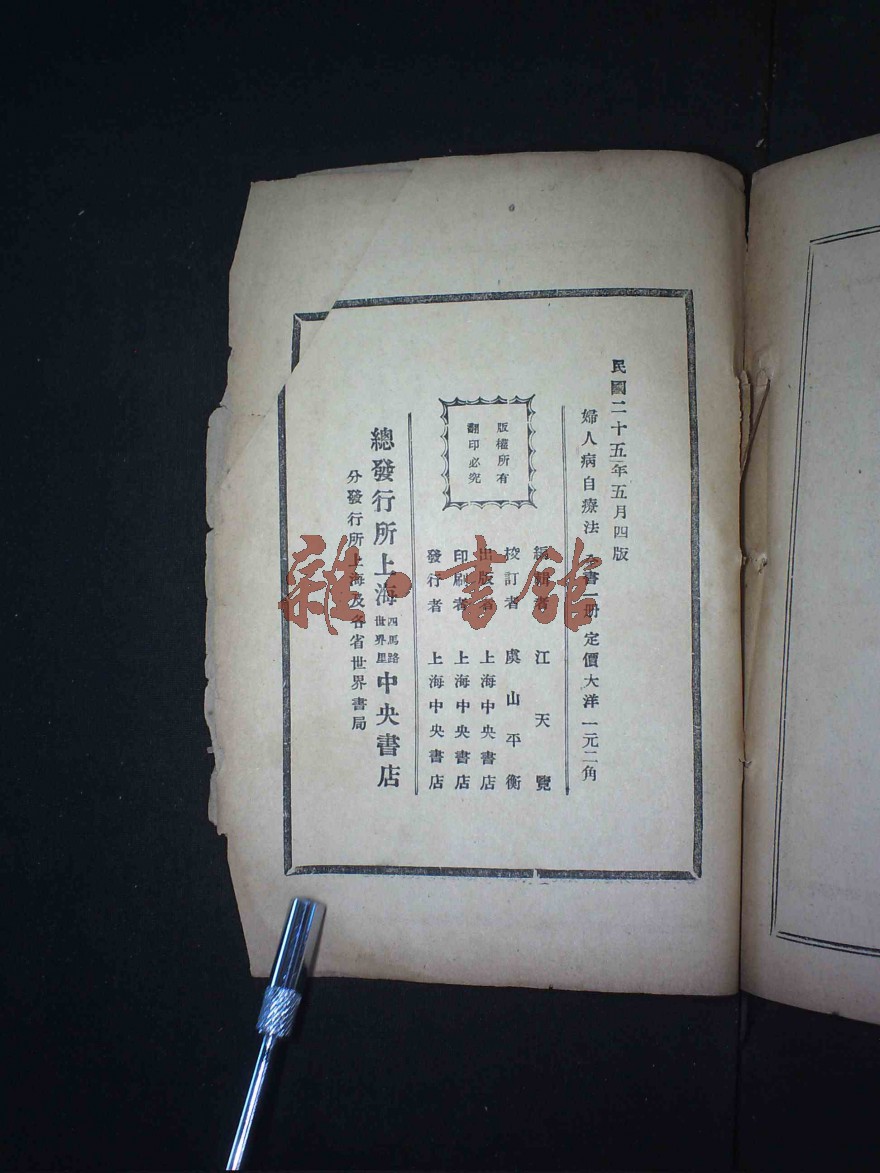 民國二十五年五月四版
婦人病自療法 全書一册 定價大洋一元二角
版權所有
翻印必究
編輯者 江天覽
校訂者 虞山平衡
出版者 上海中央書店
印刷者 上海中央書店
發行者 上海中央書店
總發行所上海四馬路世界里中央書店
分發行所上海及各省世界書局
雜·書館